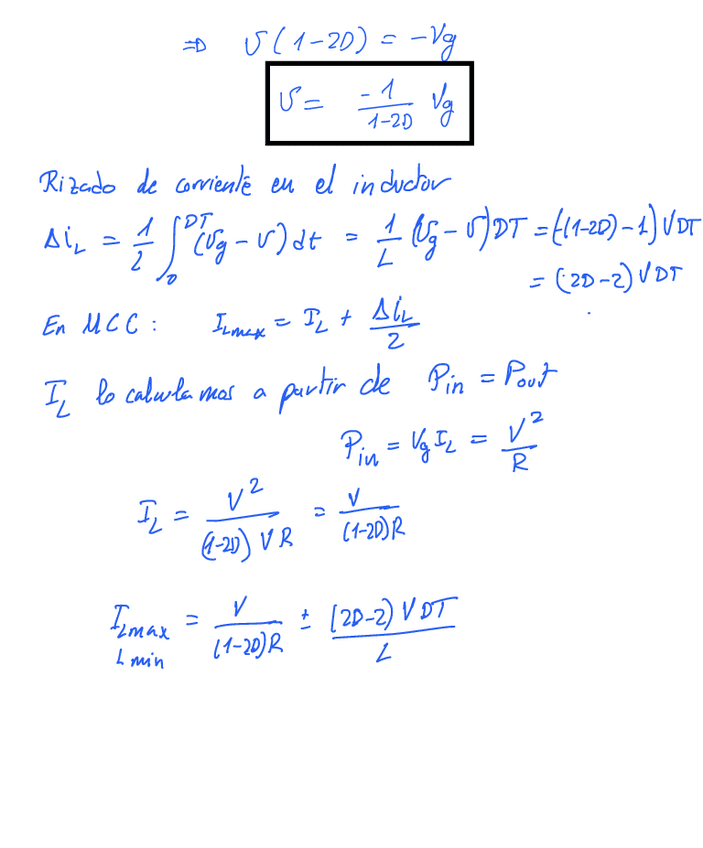 ⇒ v(1-2D) = -Vg
v = -1/(1-2D) Vg
Rizado de corriente en el inductor
Δi_L = 1/2 ∫_0^DT (Vg - v) dt = 1/L (Vg - v) DT = (-(1-2D)-1) V DT
= (2D-2) V DT
En MCC : I_Lmax = I_L + Δi_L/2
I_L lo calculamos a partir de Pin = Pout
Pin = Vg I_L = V²/R
I_L = V²/((1-2D) V R) = V/((1-2D)R)
I_Lmax = V/((1-2D)R) ± (2D-2) V DT/L
L min